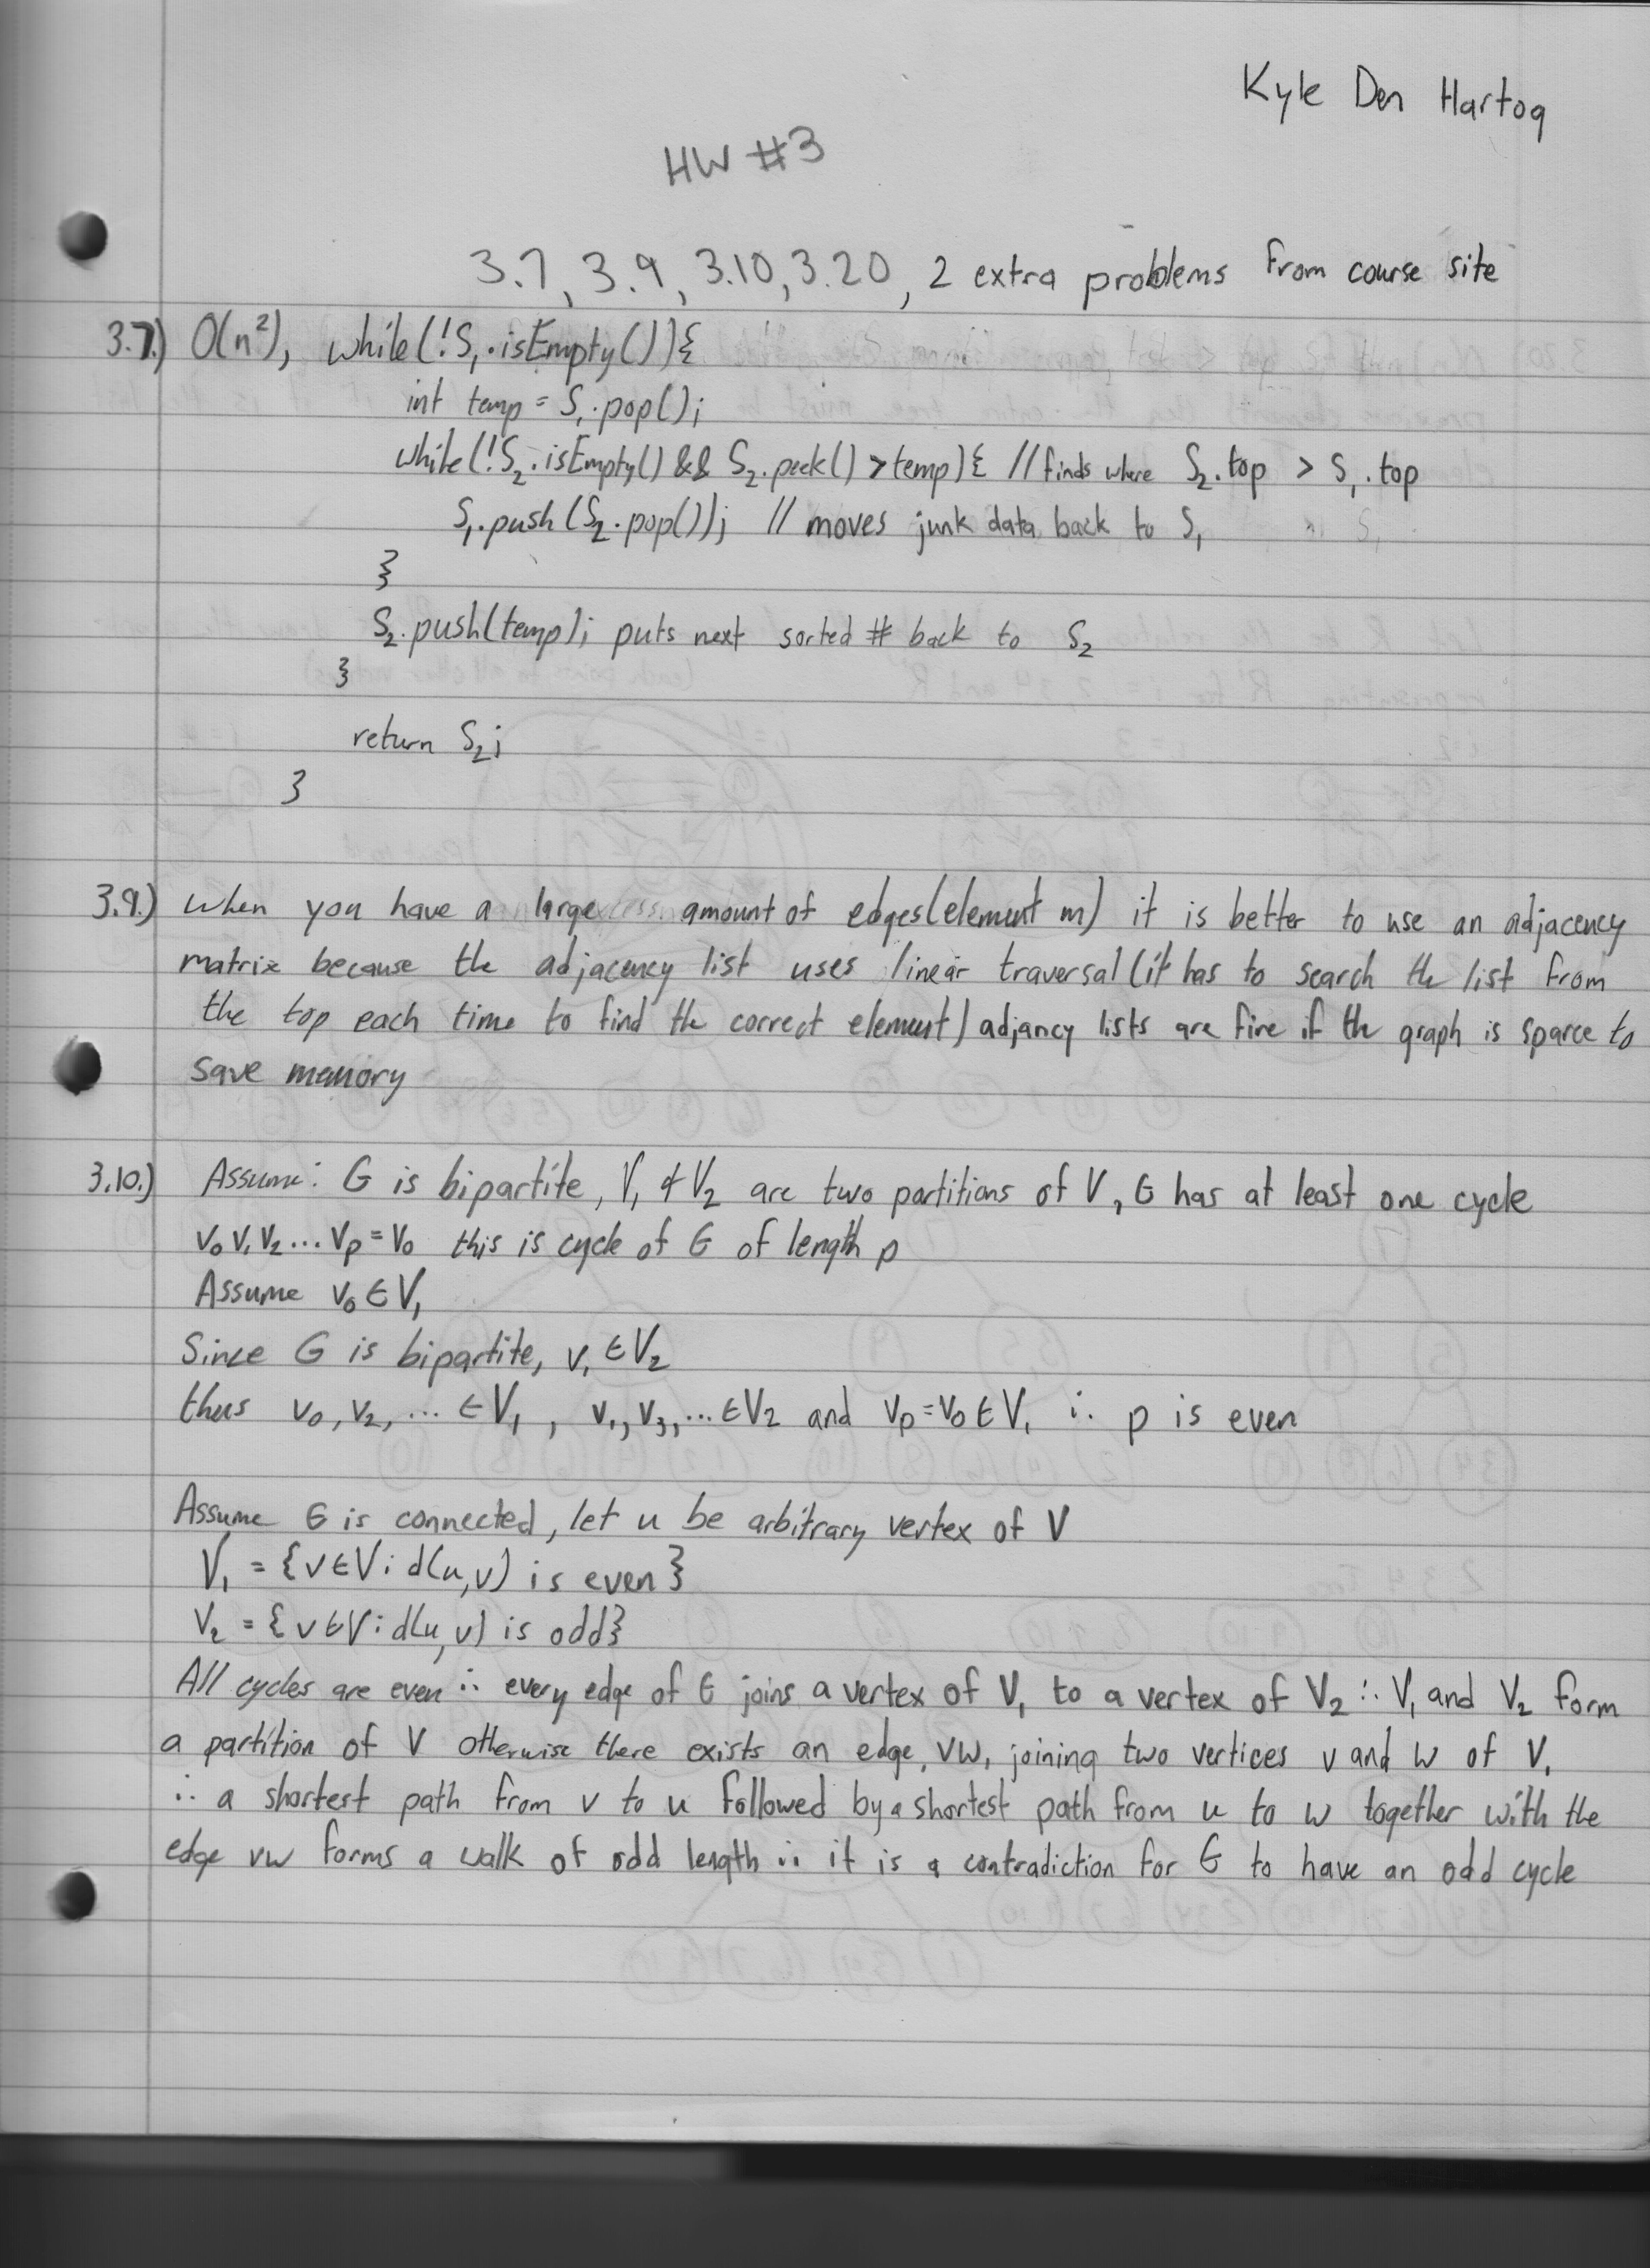 Kyle Den Hartog
HW #3
3.7, 3.9, 3.10, 3.20, 2 extra problems from course site
3.7.) O(n²), while(!S₁.isEmpty()){
int temp = S₁.pop();
while(!S₂.isEmpty() && S₂.peek() > temp){ //finds where S₂.top > S₁.top
S₁.push(S₂.pop()); // moves junk data back to S₁
}
S₂.push(temp); puts next sorted # back to S₂
}
return S₂;
}
3.9.) When you have a large amount of edges(element m) it is better to use an adjacency
matrix because the adjacency list uses linear traversal (it has to search the list from
the top each time to find the correct element) adjancy lists are fine if the graph is sparce to
save memory
3.10.) Assume: G is bipartite, V₁ & V₂ are two partitions of V, G has at least one cycle
v₀ v₁ v₂ ... vₚ = v₀ this is cycle of G of length p
Assume v₀ ∈ V₁
Since G is bipartite, v₁ ∈ V₂
thus v₀, v₂, ... ∈ V₁, v₁, v₃, ... ∈ V₂ and vₚ = v₀ ∈ V₁ ∴ p is even
Assume G is connected, let u be arbitrary vertex of V
V₁ = {v ∈ V : d(u,v) is even}
V₂ = {v ∈ V : d(u,v) is odd}
All cycles are even ∴ every edge of G joins a vertex of V₁ to a vertex of V₂ ∴ V₁ and V₂ form
a partition of V otherwise there exists an edge, vw, joining two vertices v and w of V₁
∴ a shortest path from v to u followed by a shortest path from u to w together with the
edge vw forms a walk of odd length ∴ it is a contradiction for G to have an odd cycle